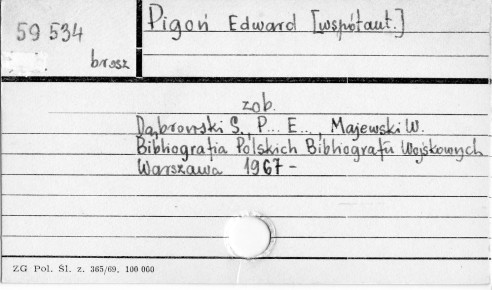 59 534
brosz
Pigoń Edward [współaut.]
zob.
Dąbrowski S., P... E..., Majewski W.
Bibliografia Polskich Bibliografii Wojskowych
Warszawa 1967 -
ZG Pol. Śl. z. 365/69. 100 000